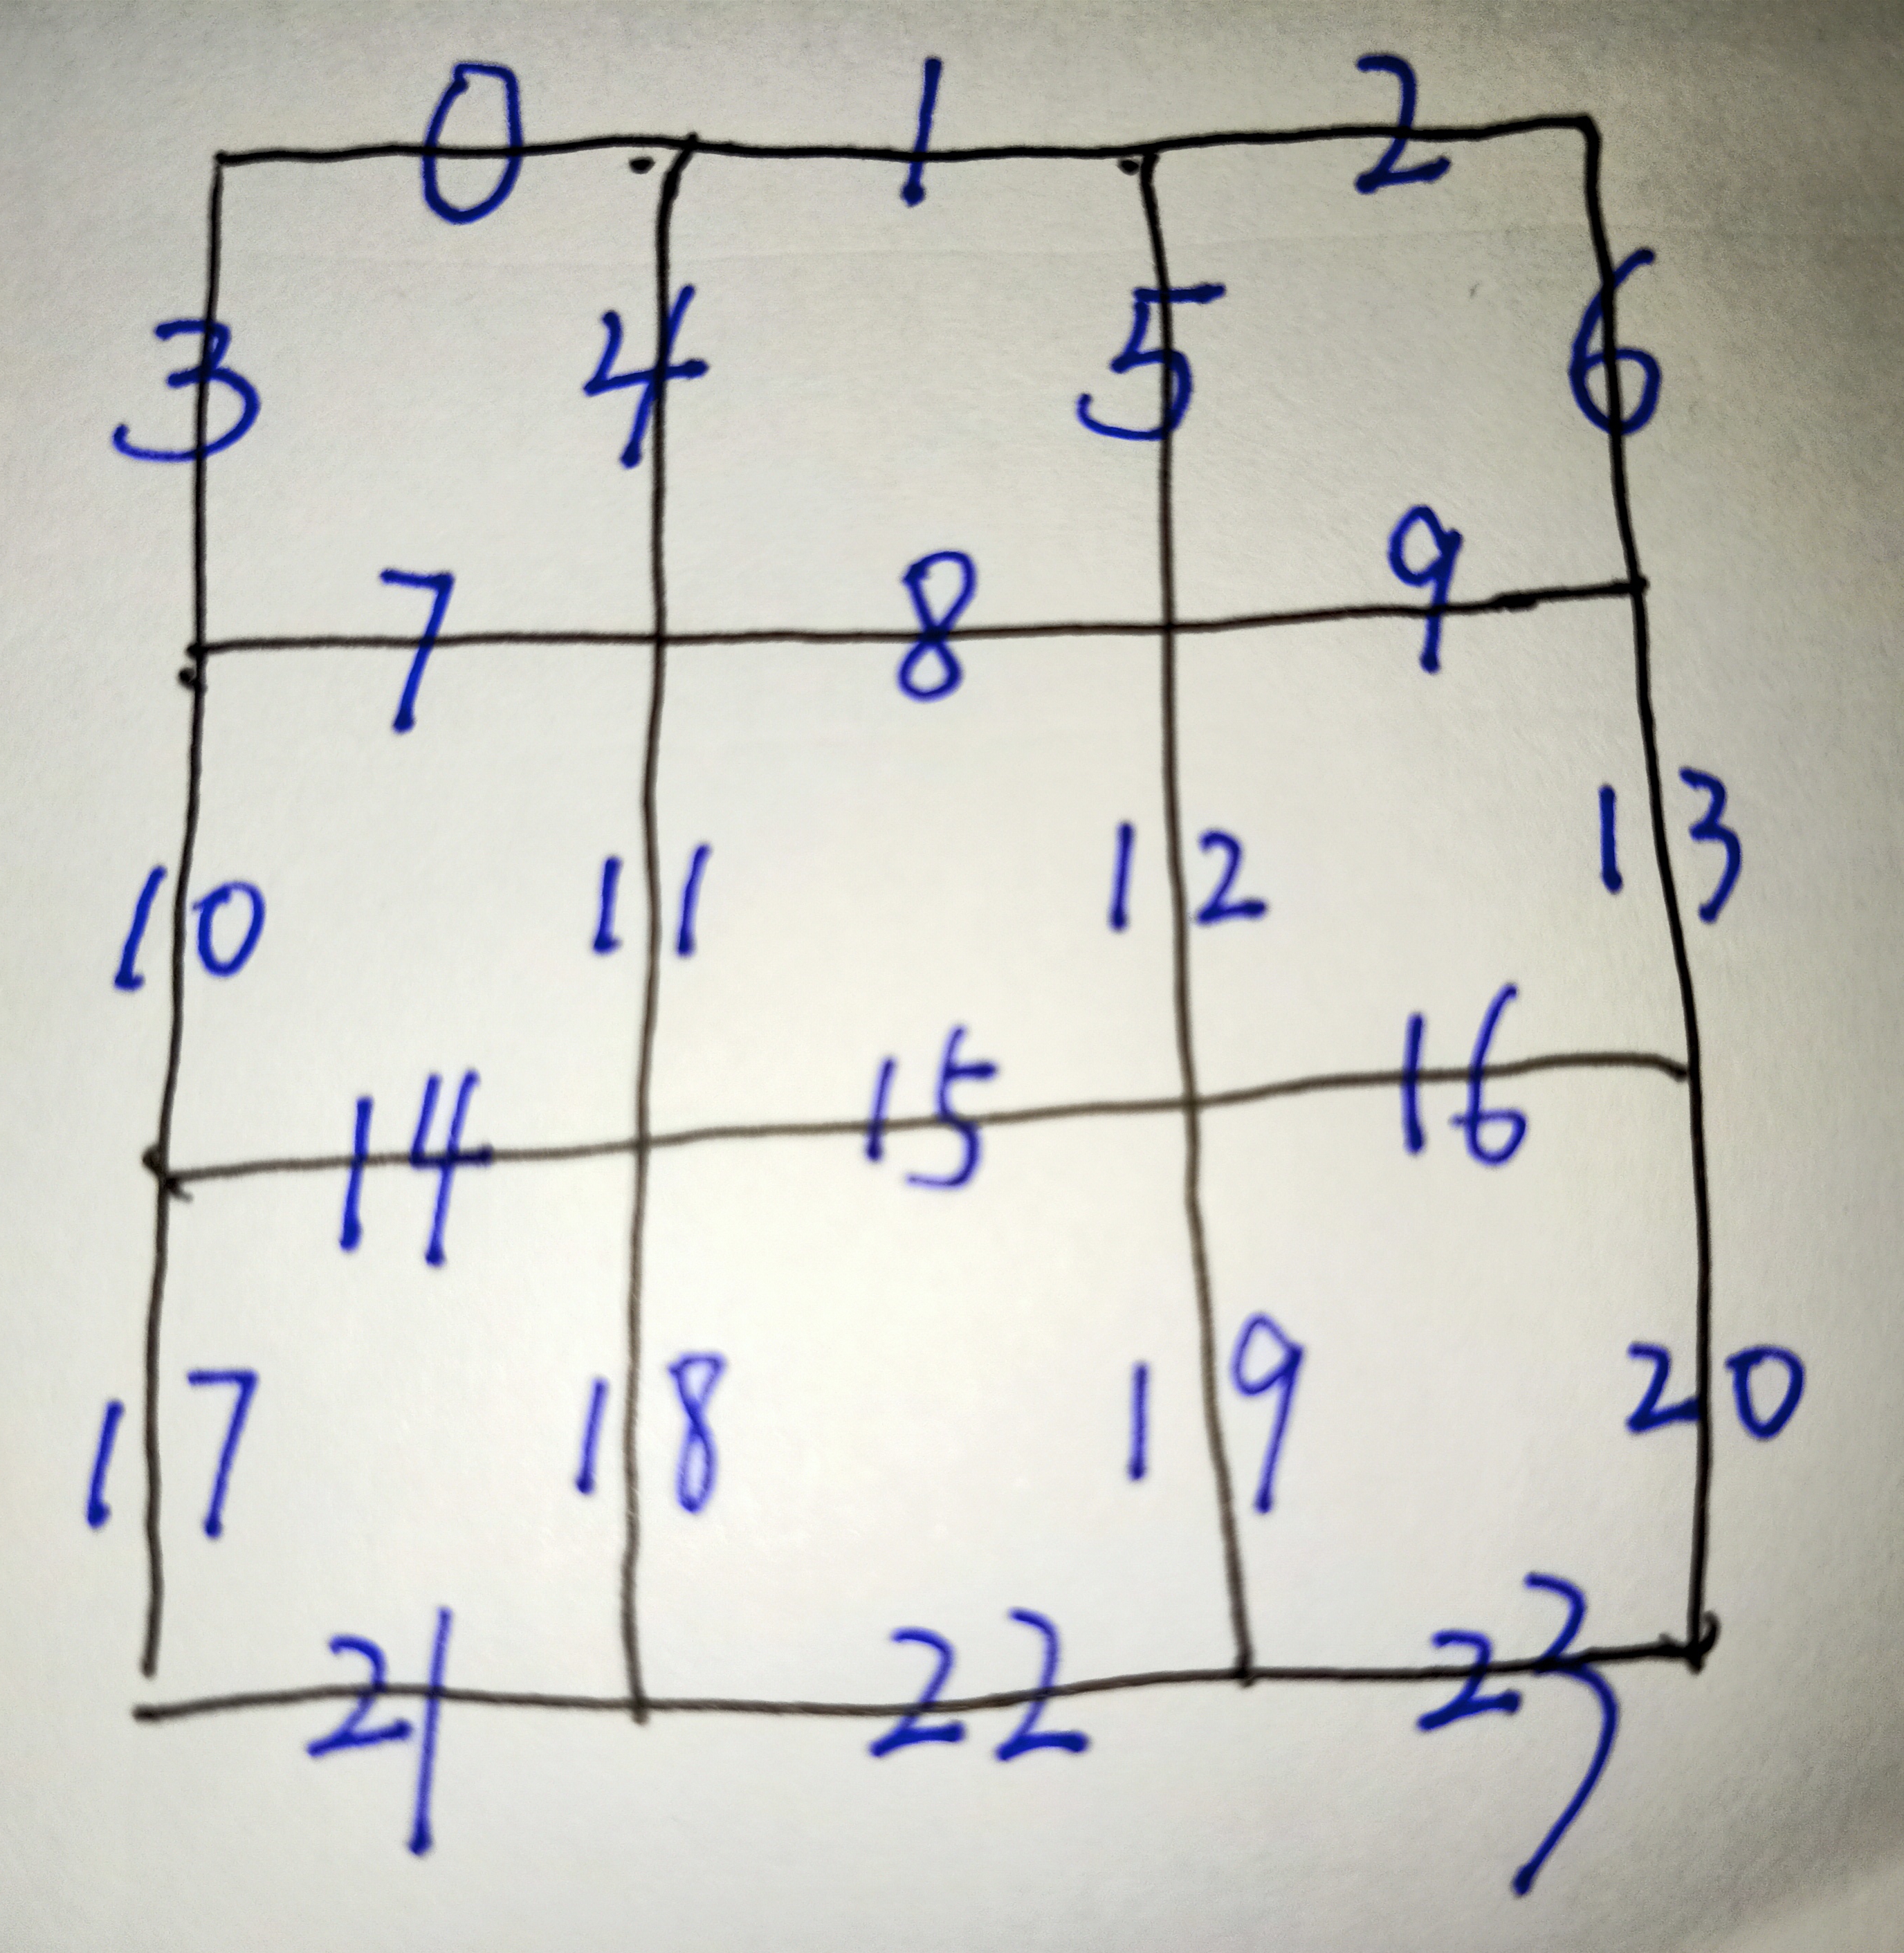 0 1 2
3 4 5 6
7 8 9
10 11 12 13
14 15 16
17 18 19 20
21 22 23